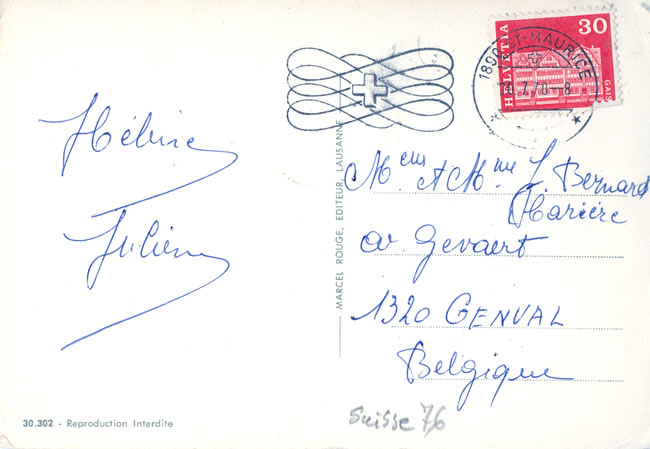 HELVETIA
30
GAIS
1890 ST-MAURICE
.7.70-8
Hélène
Julien
MARCEL ROUGE, EDITEUR, LAUSANNE
Mr et Mme J. Bernard
av Gevaert
1320 GENVAL
Belgique
30.302 - Reproduction Interdite
Suisse 76